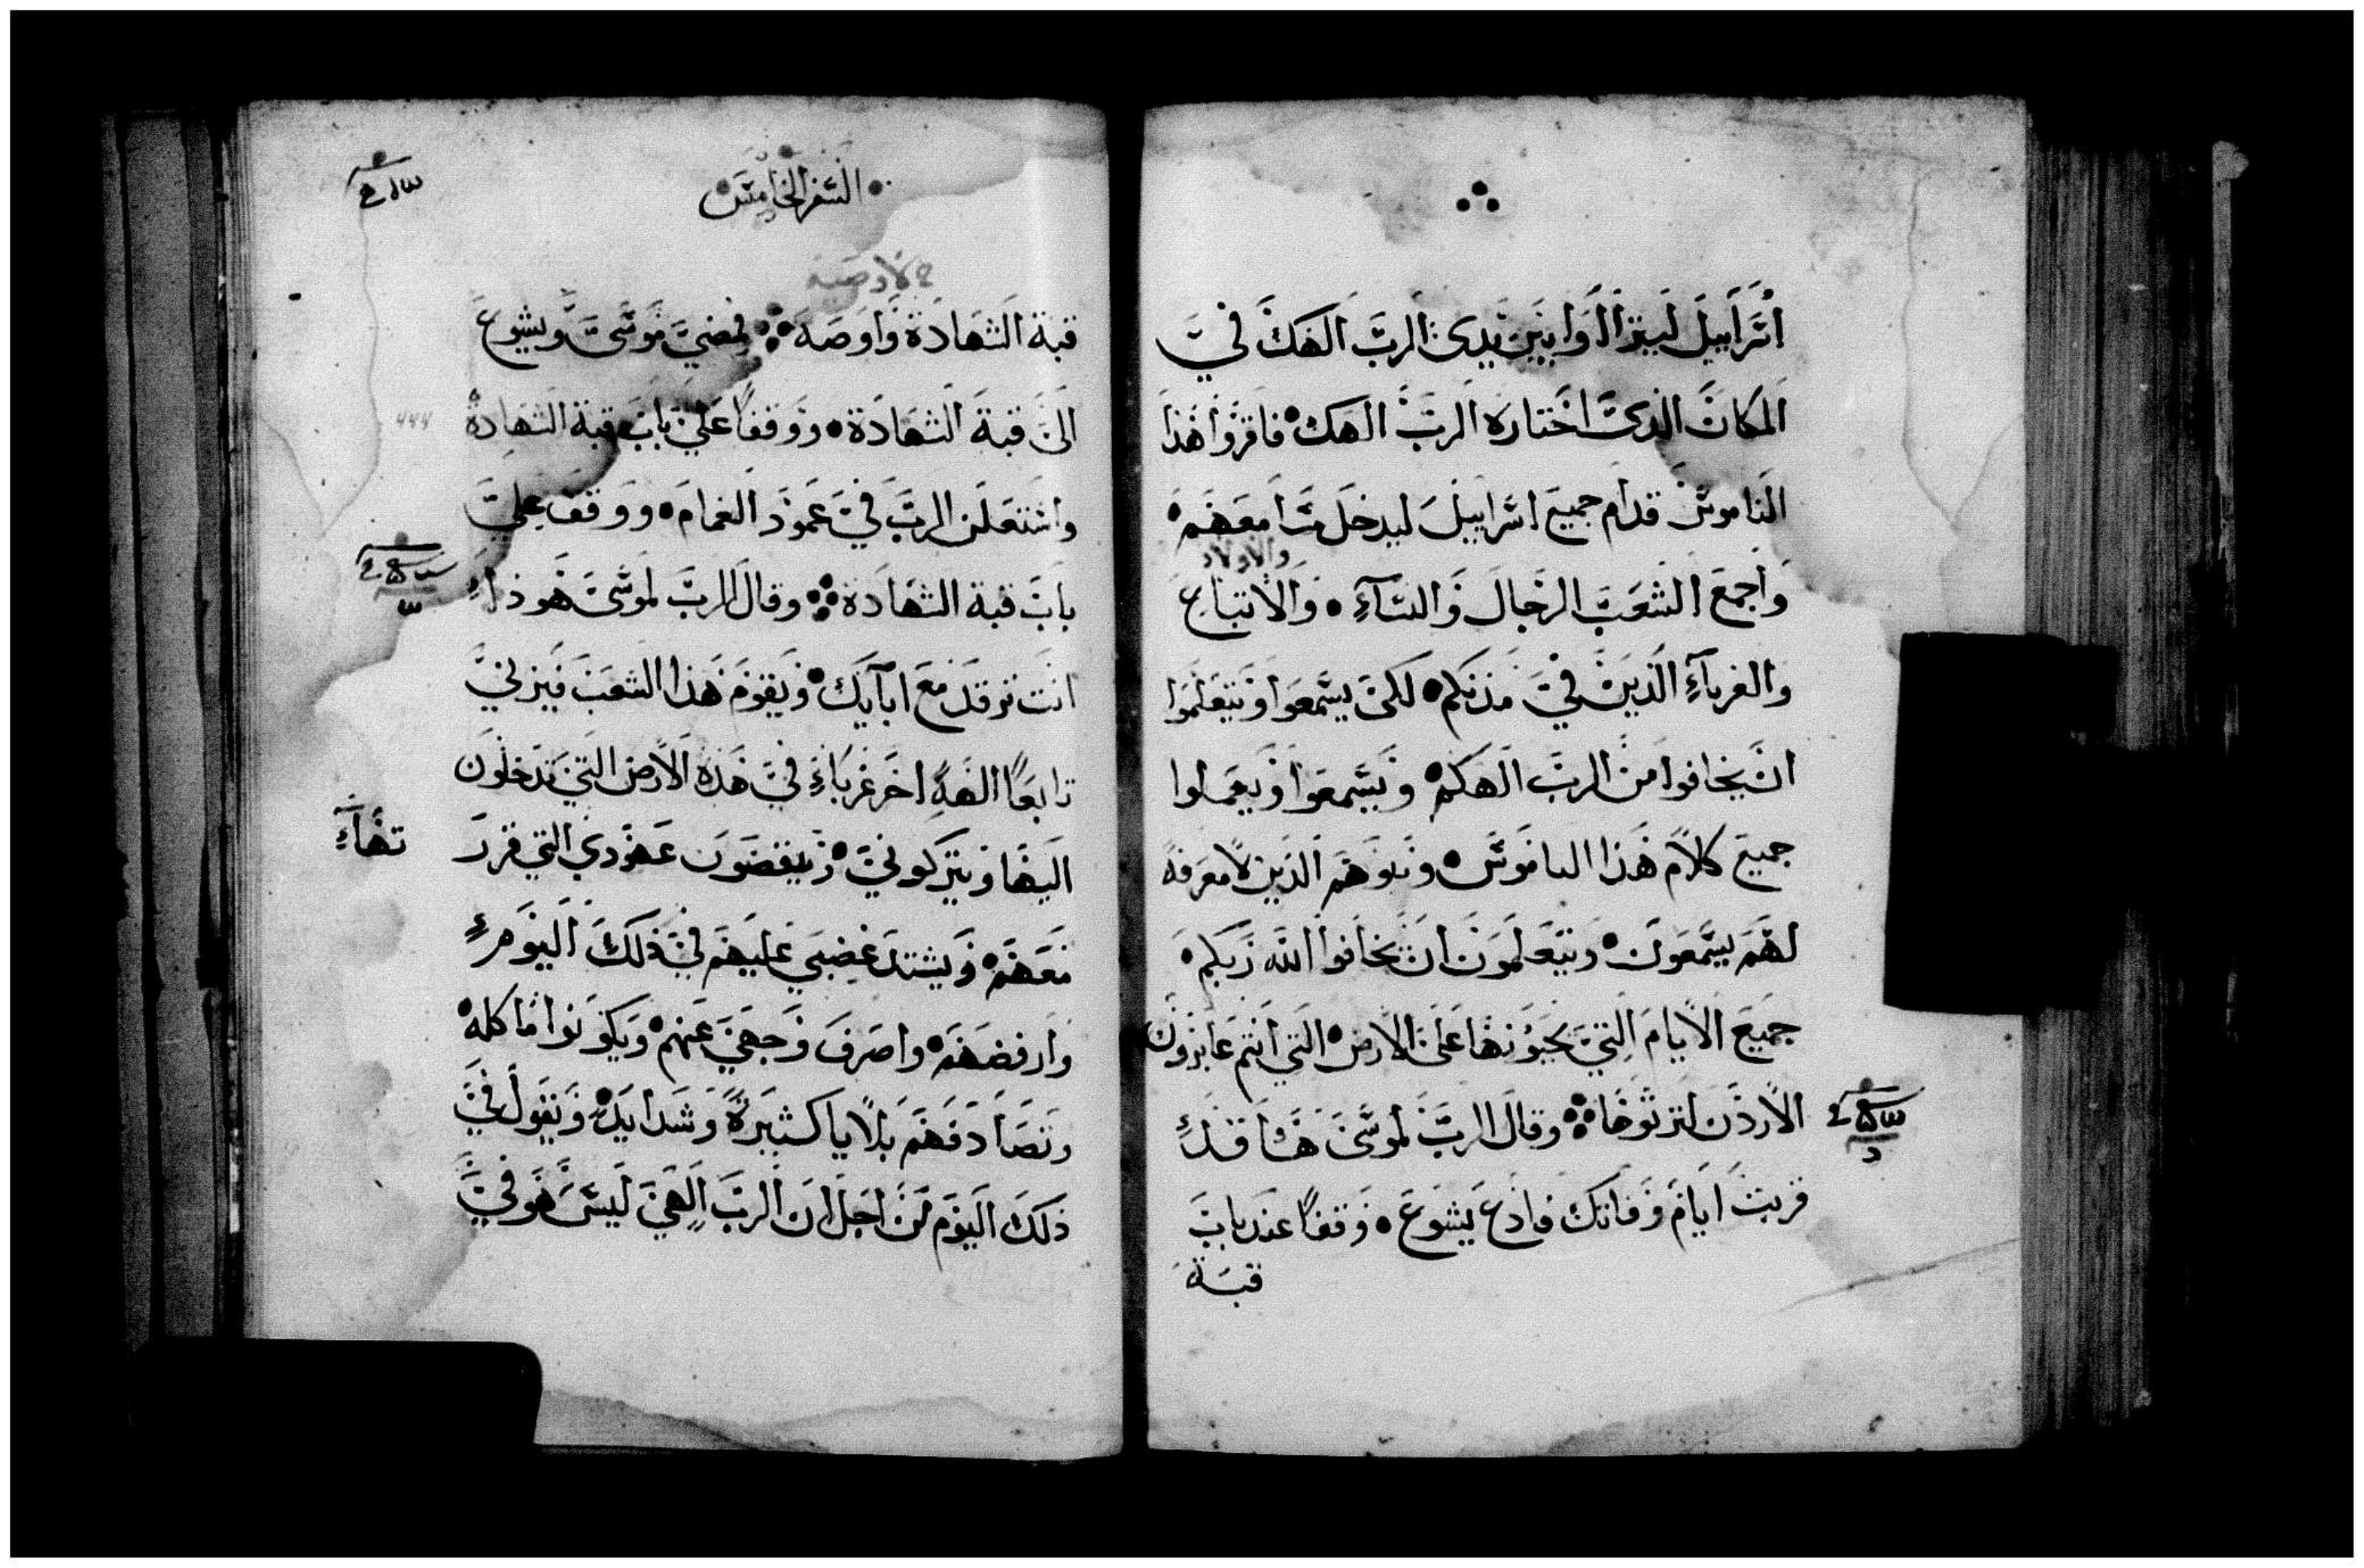 اسراييل ليتراآوا بين يدى الرب الهك في
المكان الذى اختاره الرب الهك فاقروا هذا
الناموس قدام جميع اسراييل ليدخل مسامعهم
والاولاد
واجمع الشعب الرجال والنسآء والاتباع
والغربآء الذين في مدنكم لكى يسمعوا ويتعلموا
ان يخافوا من الرب الهكم ويسمعوا ويعملوا
جميع كلام هذا الناموس وبنوهم الذين لا معرفة
لهم يسمعون ويتعلمون ان يخافوا الله ربكم
جميع الايام التي تحيونها على الارض التي انتم عابرون
الاردن لترثوها وقال الرب لموسى ها قد
قربت ايام وفاتك فادع يشوع وقفا عند باب
قبة
السفر الخامس
قبة الشهادة واوصه فمضى موسى ويشوع
الى قبة الشهادة ووقفا على باب قبة الشهادة
واشتعلن الرب في عمود الغمام ووقف على
باب قبة الشهادة وقال الرب لموسى هوذا
انت ترقد مع ابآيك ويقوم هذا الشعب فيزني
تابعا الهة اخر غرباء في هذه الارض التي تدخلون
اليها ويتركوني وينقضون عهودي التي قرر
تهاء
معهم ويشتد غضبي عليهم في ذلك اليوم
وارفضهم واصرف وجهي عنهم ويكونوا ماكله
وتصادفهم بلايا كثيرة وشدايد ويقول في
ذلك اليوم من اجل ان الرب الهي ليس هو في